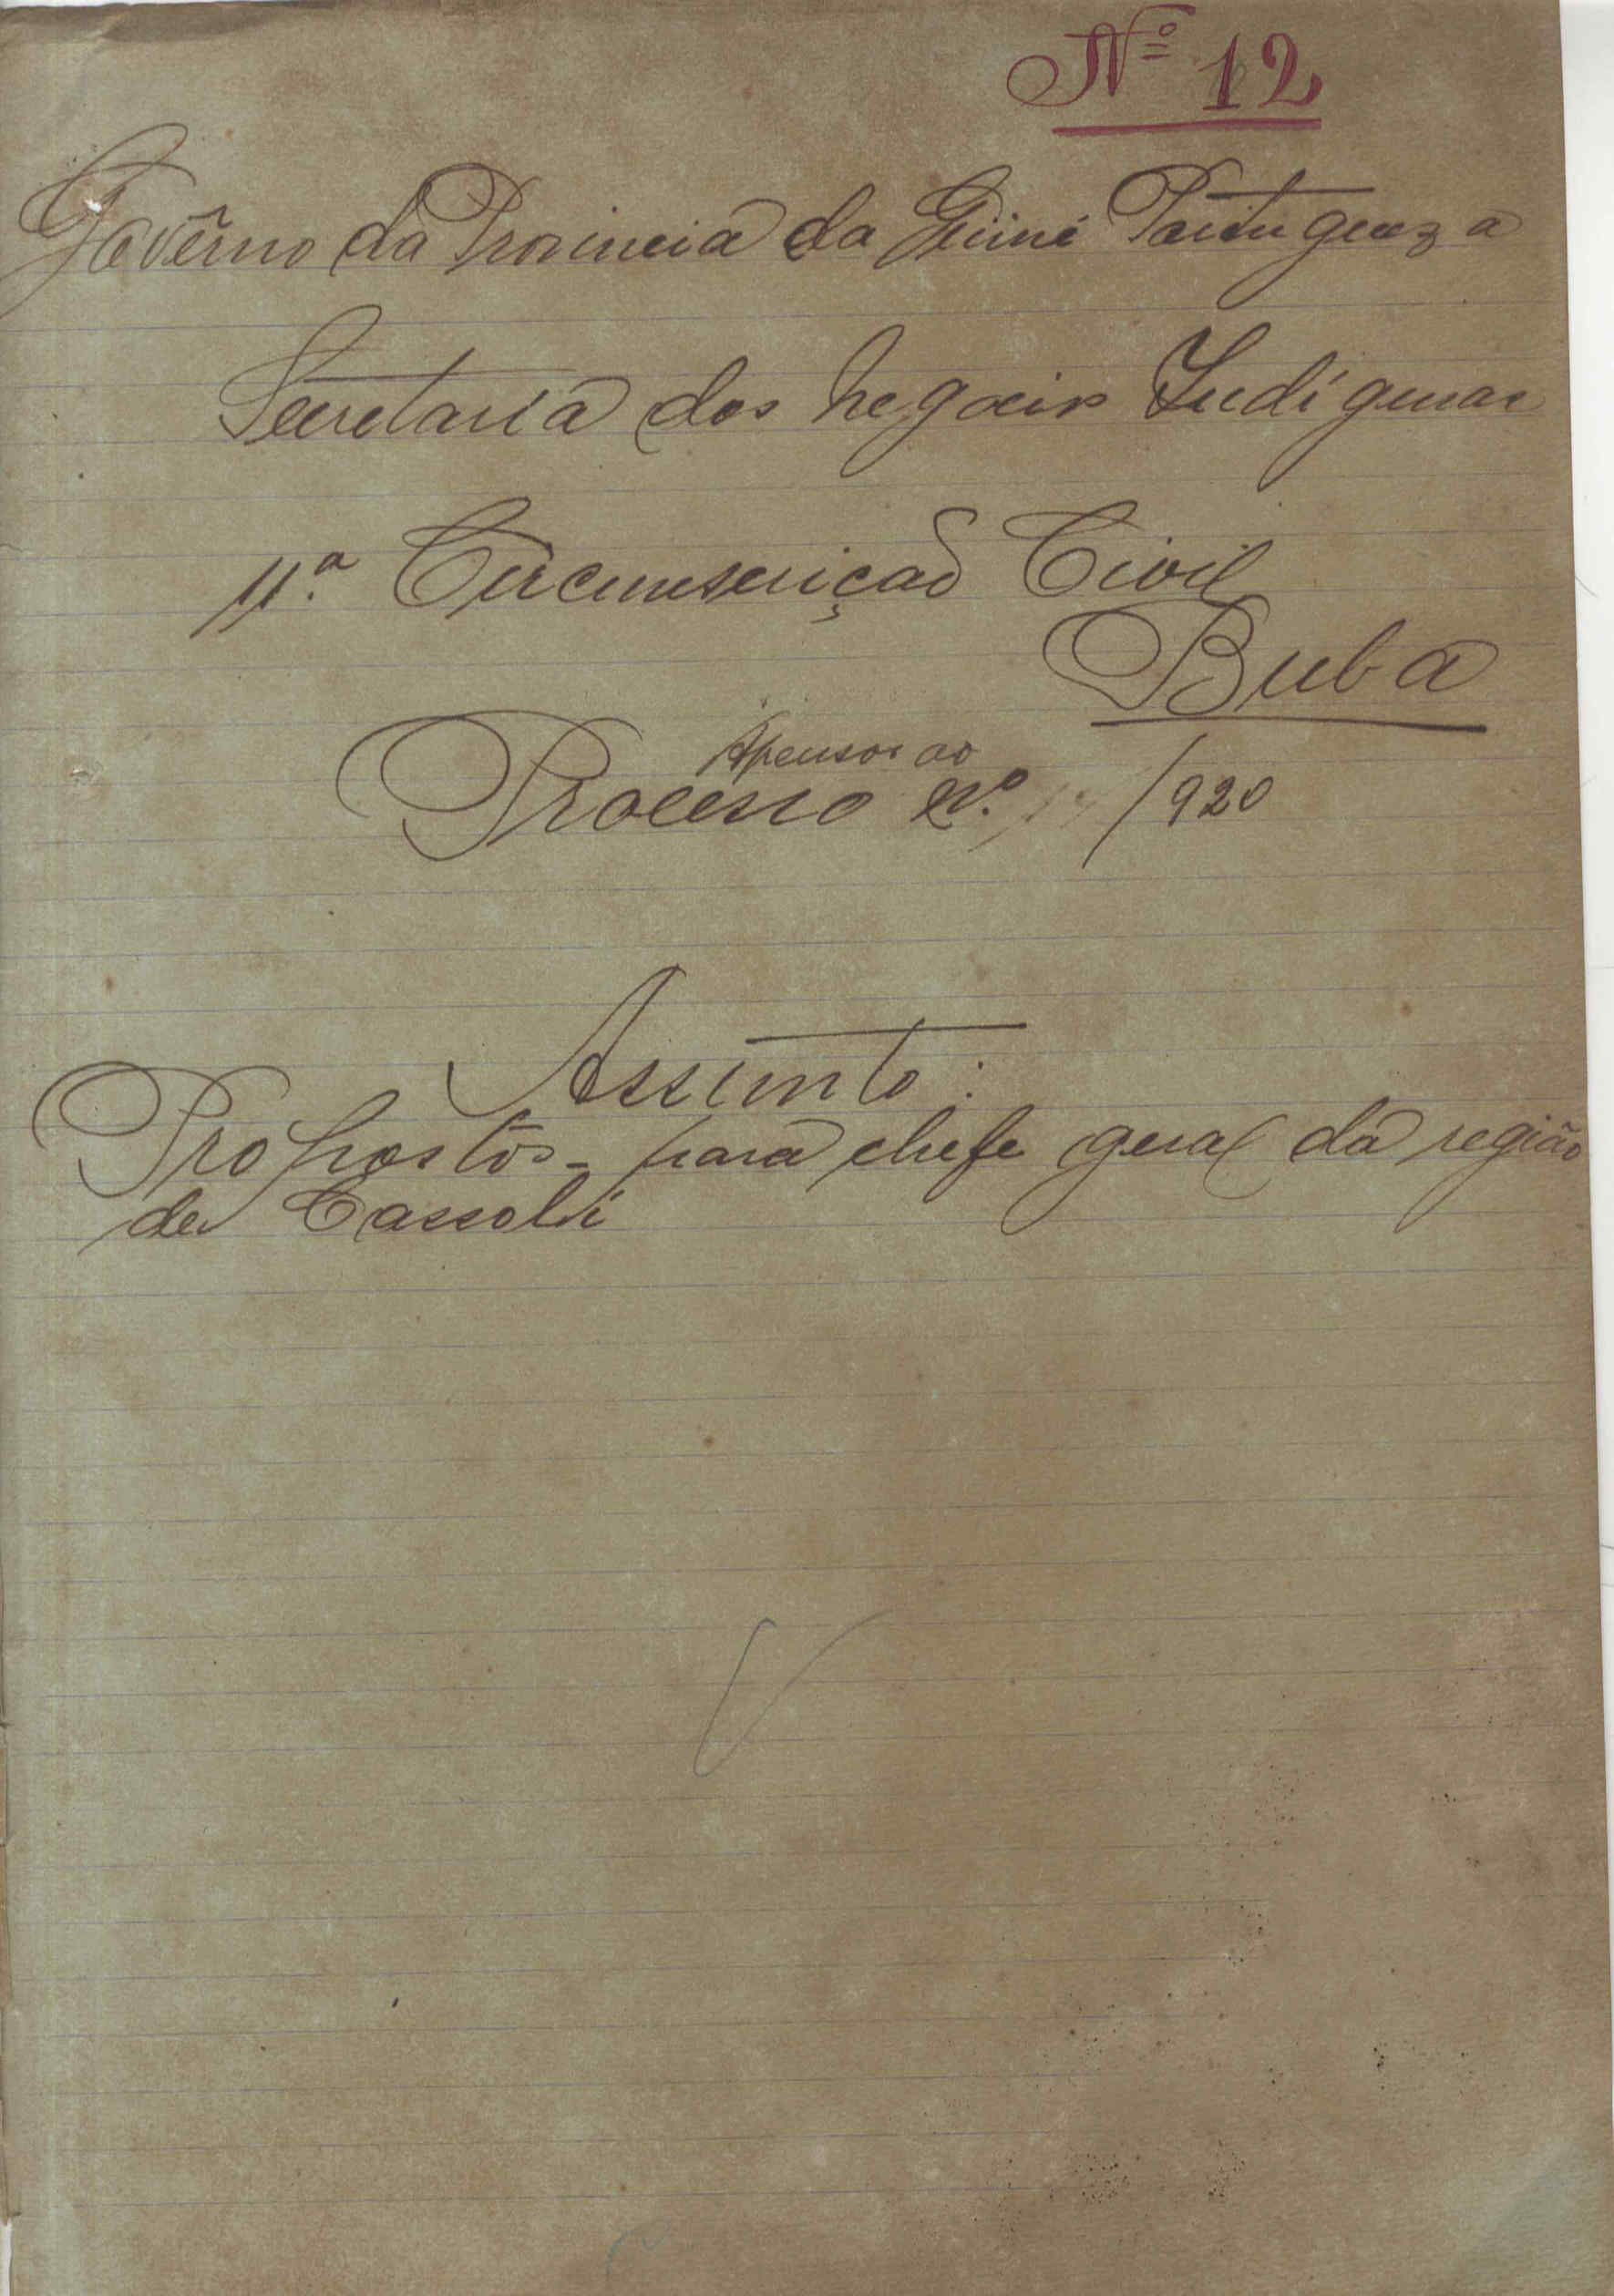 Nº 12
Govêrno da Provincia da Guiné Portugueza
Secretaria dos Negocios Indígenas
11.ª Circumscrição Civil
Buba
Apensos ao
Processo Nº. /920
Assunto:
Propostos - para chefe geral da região
de